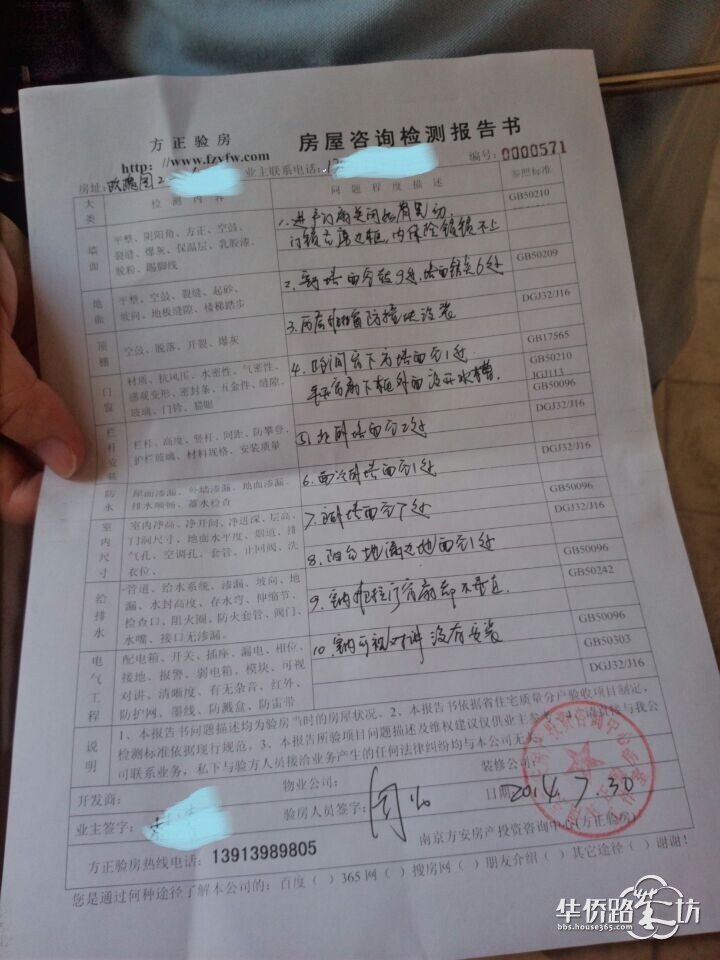 方正验房 房屋咨询检测报告书
http: //www.fzyfw.com
房址: 业主联系电话: 编号: 0000571
大类 检测内容 问题程度描述 参照标准
墙面 平整、阴阳角、方正、空鼓、裂缝、爆灰、保温层、乳胶漆、胶粉、踢脚线 GB50210
1. 进户门扇关闭始有晃动
门锁 内保险锁锁不上
地面 平整、空鼓、裂缝、起砂、坡向、地板缝隙、楼梯踏步 GB50209
2. 墙面空鼓9处, 墙面 6处
顶棚 空鼓、脱落、开裂、爆灰 DGJ32/J16
3. 防撞块没装
门窗 材质、抗风压、水密性、气密性、感观变形、密封条、五金件、缝隙、玻璃、门铃、猫眼 GB17565
GB50210
JGJ113
GB50096
4. 下方墙面空1处
下框外面没开水槽
栏杆安装 栏杆、高度、竖杆、间距、防攀登、护栏玻璃、材料规格、安装质量 DGJ32/J16
5. 北卧墙面空2处
防水 屋面渗漏、外墙渗漏、地面渗漏、排水顺畅、蓄水检查 DGJ32/J16
6. 墙面空1处
室内尺寸 室内净高、净开间、净进深、层高、门洞尺寸、地面水平度、烟道、排气孔、空调孔、套管、止回阀、洗衣位、 GB50096
DGJ32/J16
7. 墙面空7处
8. 阳台地漏边地面空1处
给排水 管道、给水系统、渗漏、坡向、地漏、水封高度、存水弯、伸缩节、检查口、阻火圈、防火套管、阀门、水嘴、接口无渗漏。 GB50096
GB50242
9. 拉门 扇
电气工程 配电箱、开关、插座、漏电、相位、接地、报警、弱电箱、模块、可视对讲、清晰度、有无杂音、红外、防护网、墨线、防溅盒、防雷带 GB50096
GB50303
DGJ32/J16
10. 可视对讲没有安装
说明 1、本报告书问题描述均为验房当时的房屋状况。2、本报告书依据省住宅质量分户验收项目制定,
检测标准依据现行规范。3、本报告所验项目问题描述及维权建议仅供业主参考。4、请直接与我公
司联系业务，私下与验方人员接洽业务产生的任何法律纠纷均与本公司无关。
开发商: 物业公司: 装修公司:
业主签字: 验房人员签字: 日期 2014.7.30
南京方安房产投资咨询中心(方正验房)
方正验房热线电话: 13913989805
您是通过何种途径了解本公司的: 百度（ ）365网（ ）搜房网（ ）朋友介绍（ ）其它途径（ ）谢谢!
华侨路茶坊
bbs.house365.com